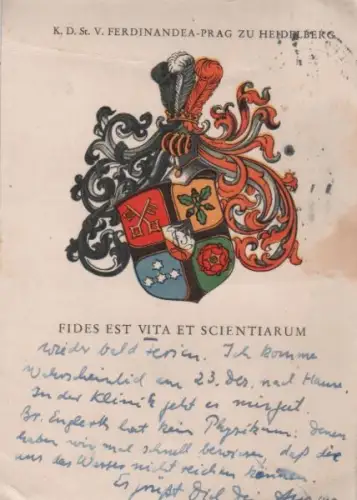 K. D. St. V. FERDINANDEA-PRAG ZU HEIDELBERG
FIDES EST VITA ET SCIENTIARUM
wieder bald Ferien. Ich komme
Wahrscheinlich am 23. Dez. nach Hause.
In der Klinik geht es mir gut.
Br. Englerth hat sein Physikum. Denen
haben wir mal schnell bewiesen, daß sie
uns das Wasser nicht reichen können.
Es grüßt Dich